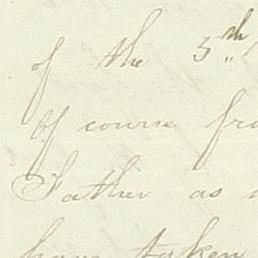 of the 5th
Of course fro
Father as
have taken